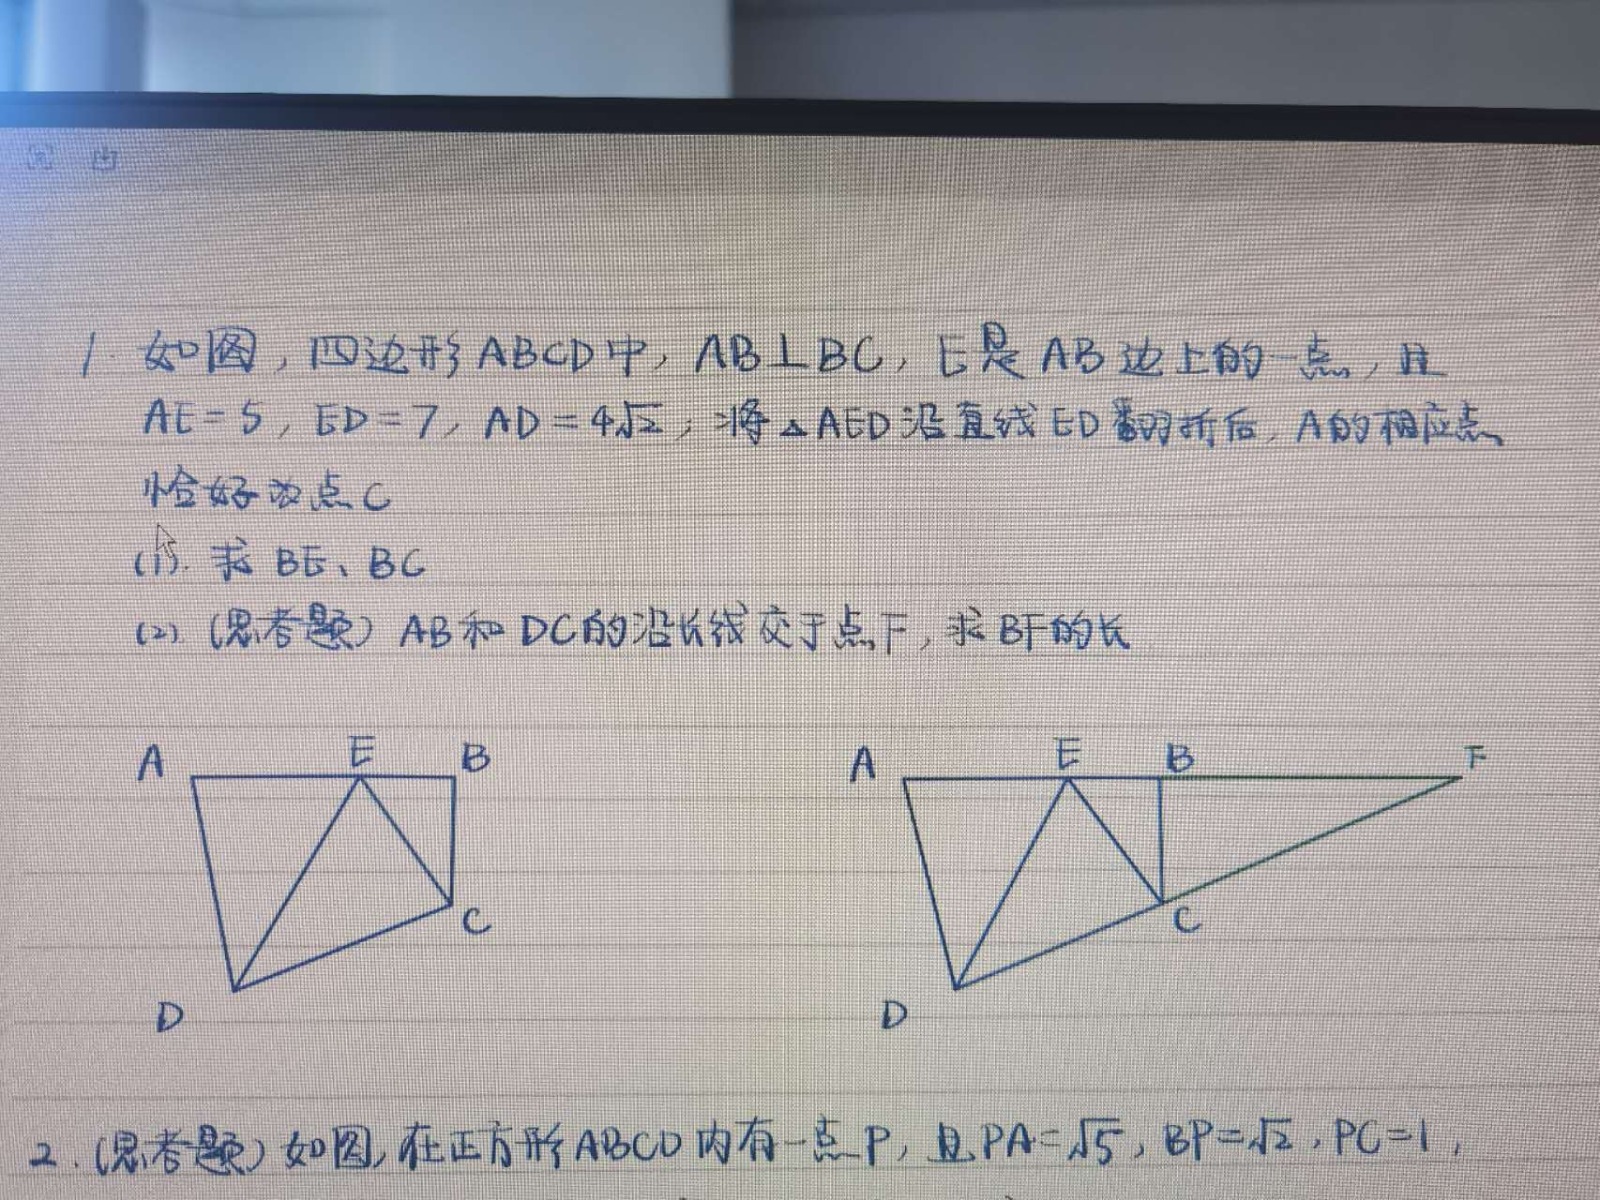 1. 如图，四边形ABCD中，AB⊥BC，E是AB边上的一点，且
AE=5，ED=7，AD=4√2，将△AED沿直线ED翻折后，A的相应点
恰好为点C
(1). 求BE、BC
(2). (思考题) AB和DC的沿长线交于点F，求BF的长
A E B A E B F
C C
D D
2. (思考题) 如图，在正方形ABCD内有一点P，且PA=√5，BP=√2，PC=1，